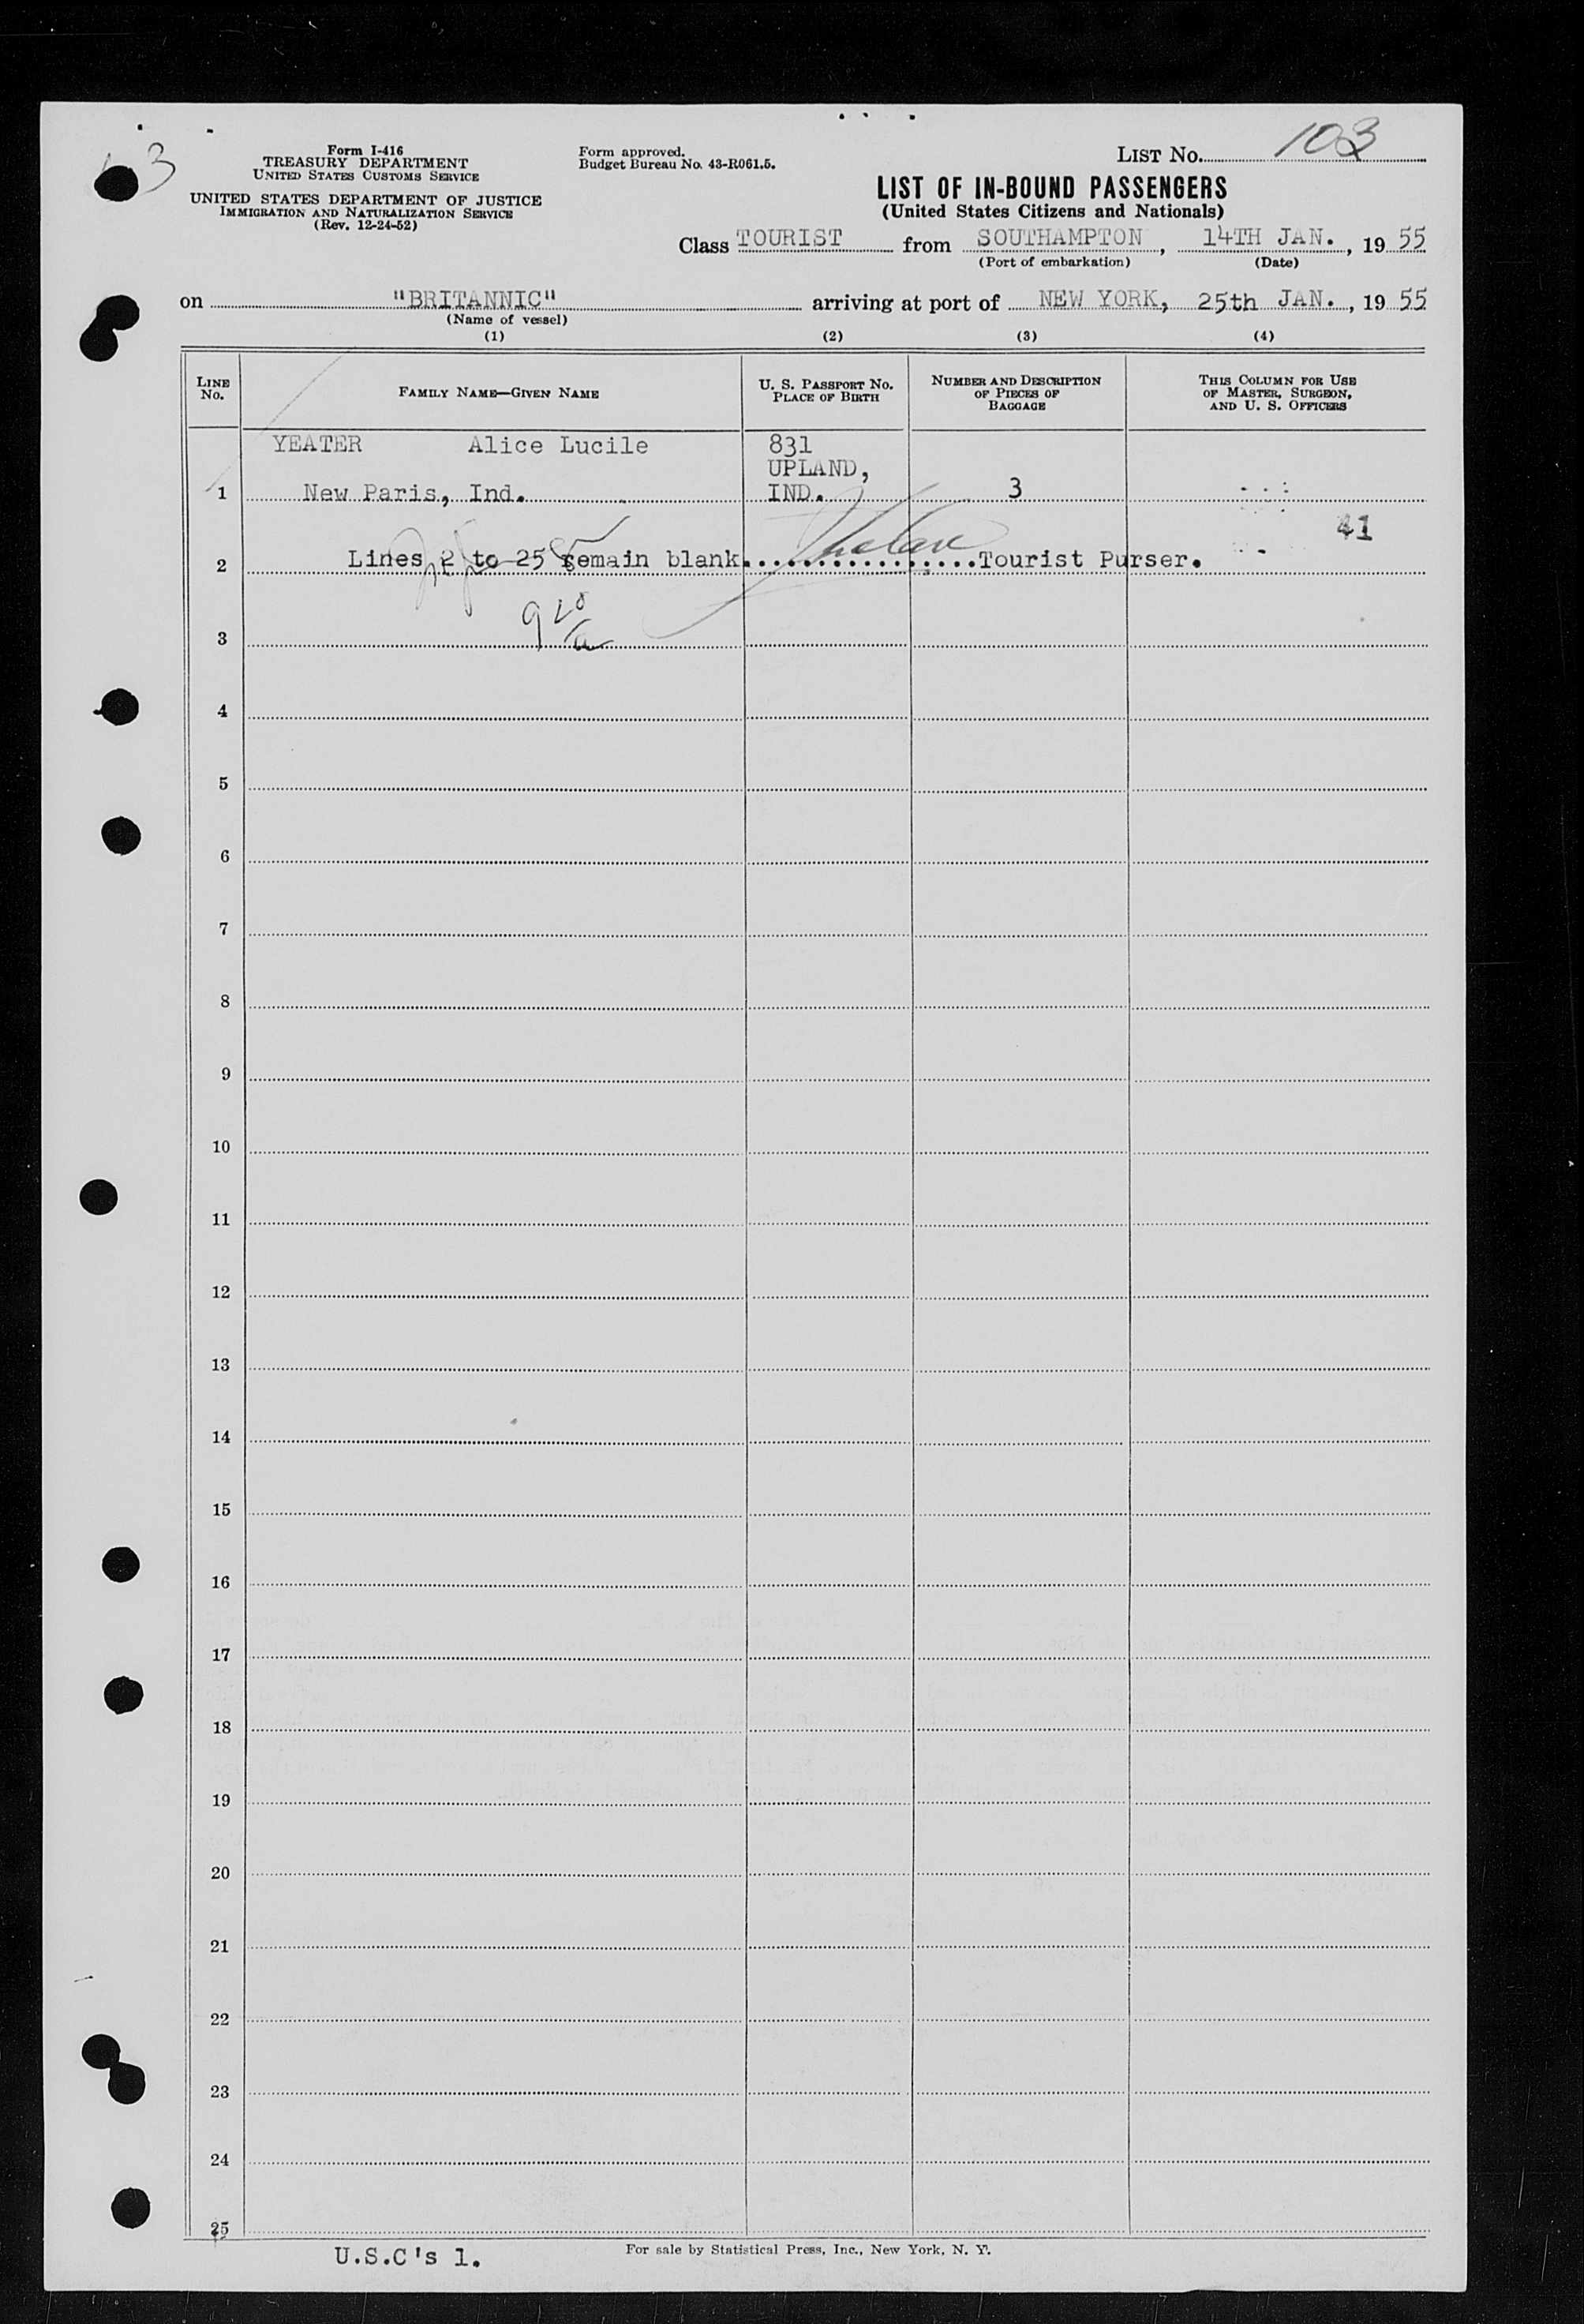 Form I-416
TREASURY DEPARTMENT
UNITED STATES CUSTOMS SERVICE
UNITED STATES DEPARTMENT OF JUSTICE
IMMIGRATION AND NATURALIZATION SERVICE
(Rev. 12-24-52)
Form approved.
Budget Bureau No. 43-R061.5.
LIST No. 103
LIST OF IN-BOUND PASSENGERS
(United States Citizens and Nationals)
Class TOURIST from SOUTHAMPTON, 14TH JAN., 19 55
(Port of embarkation) (Date)
on "BRITANNIC" arriving at port of NEW YORK, 25th JAN., 19 55
(Name of vessel)
(1) (2) (3) (4)
LINE No. FAMILY NAME—GIVEN NAME U. S. PASSPORT No. PLACE OF BIRTH NUMBER AND DESCRIPTION OF PIECES OF BAGGAGE THIS COLUMN FOR USE OF MASTER, SURGEON, AND U. S. OFFICERS
YEATER Alice Lucile 831
UPLAND,
1 New Paris, Ind. IND. 3
41
2 Lines 2 to 25 remain blank..................Tourist Purser.
3
4
5
6
7
8
9
10
11
12
13
14
15
16
17
18
19
20
21
22
23
24
25
U.S.C's 1. For sale by Statistical Press, Inc., New York, N. Y.